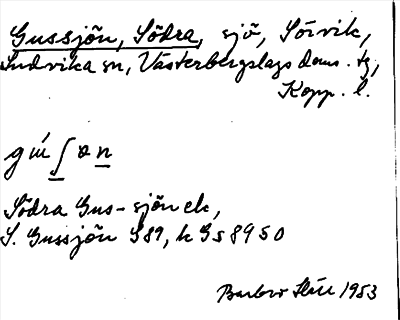 Gussjön, Södra, sjö, Sörvik,
Ludvika sn, Västerbergslags doms. tg,
Kopp. l.
Södra Gus-sjön ek,
S. Gussjön S89, h Gs 8950
1953